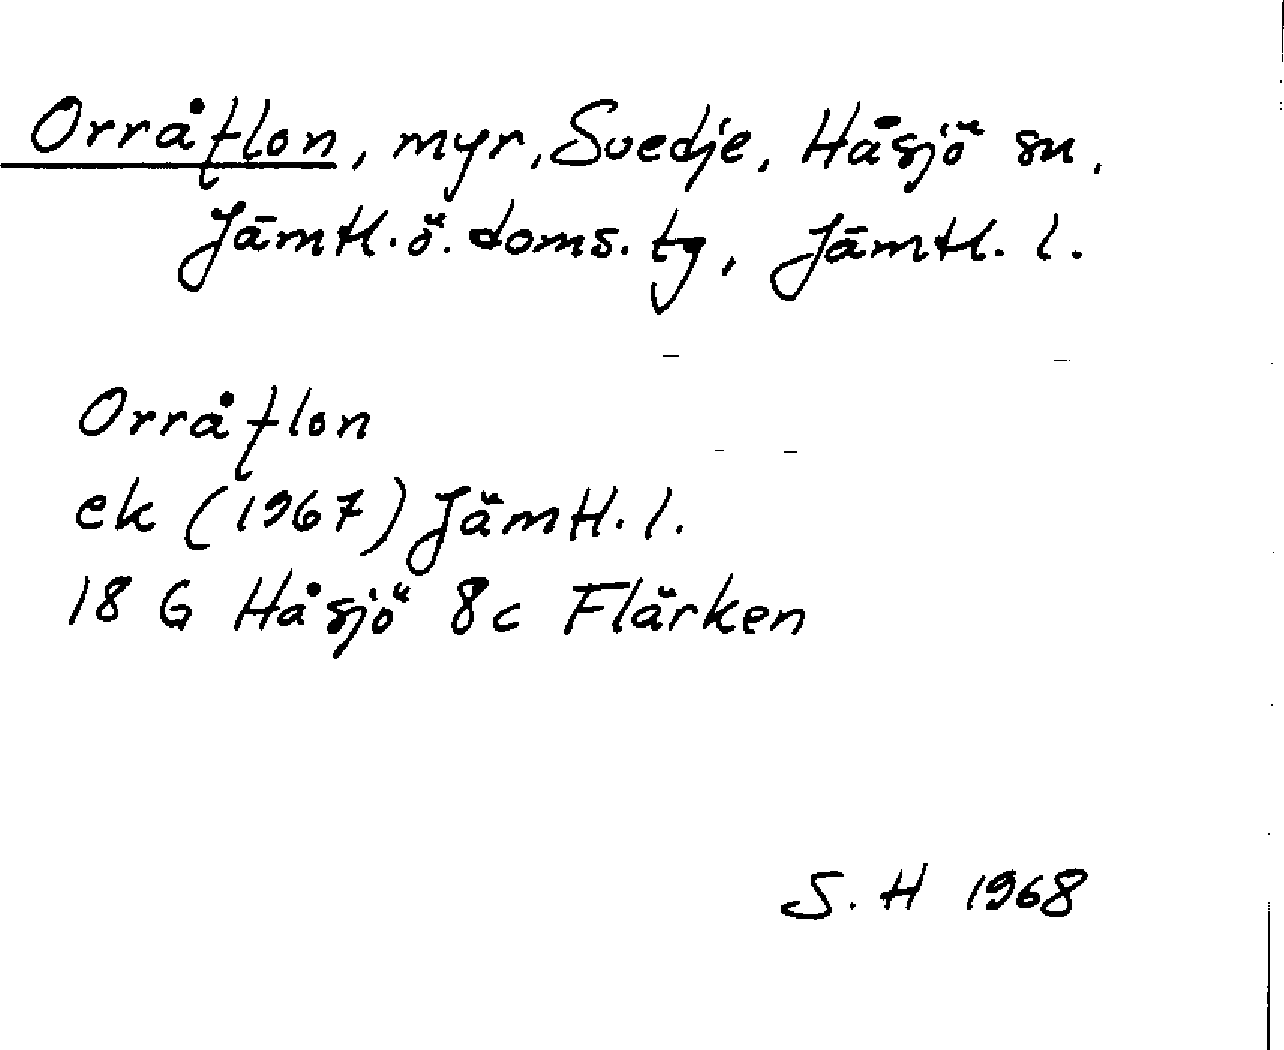 Orråflon, myr, Svedje, Håsjö sn.
Jämtl. ö. doms. tg, Jämtl. l.
Orråflon
ek (1967) Jämtl. l.
18 G Håsjö 8c Flärken
S. H 1968